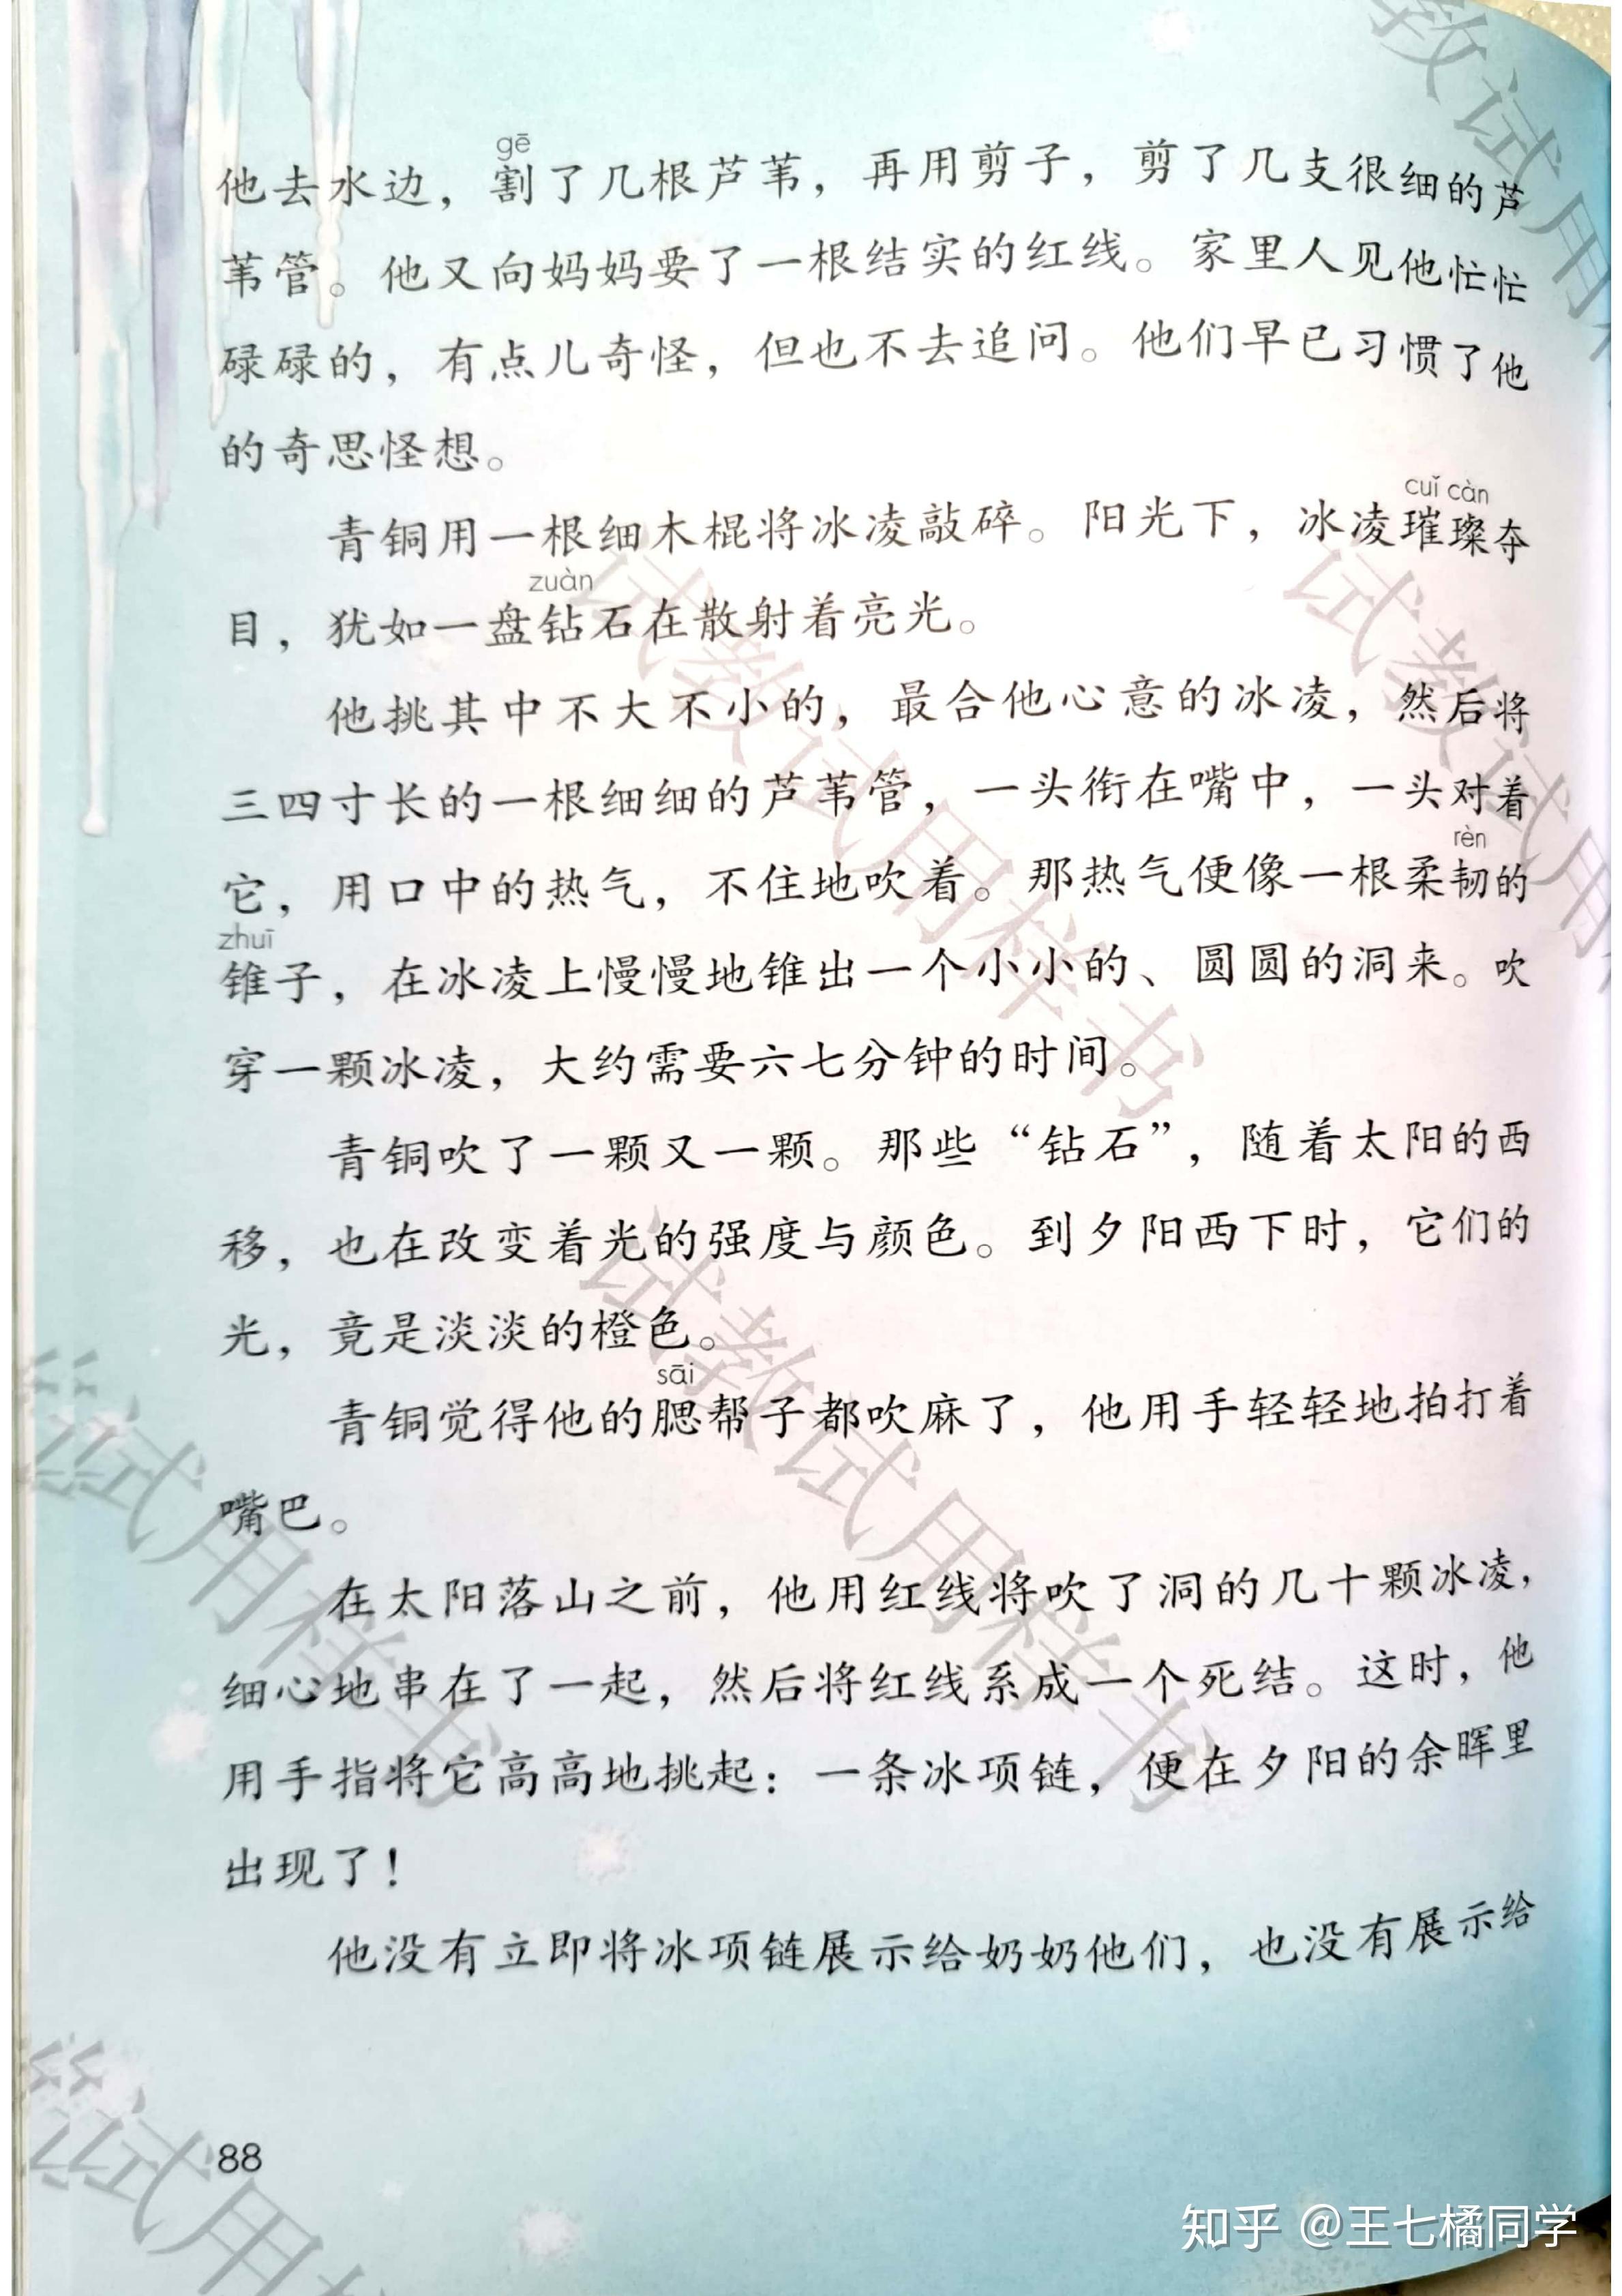 gē
他去水边，割了几根芦苇，再用剪子，剪了几支很细的芦
苇管。他又向妈妈要了一根结实的红线。家里人见他忙忙
碌碌的，有点儿奇怪，但也不去追问。他们早已习惯了他
的奇思怪想。
cuǐ càn
青铜用一根细木棍将冰凌敲碎。阳光下，冰凌璀璨夺
zuàn
目，犹如一盘钻石在散射着亮光。
他挑其中不大不小的，最合他心意的冰凌，然后将
三四寸长的一根细细的芦苇管，一头衔在嘴中，一头对着
rèn
它，用口中的热气，不住地吹着。那热气便像一根柔韧的
zhuī
锥子，在冰凌上慢慢地锥出一个小小的、圆圆的洞来。吹
穿一颗冰凌，大约需要六七分钟的时间。
青铜吹了一颗又一颗。那些“钻石”，随着太阳的西
移，也在改变着光的强度与颜色。到夕阳西下时，它们的
光，竟是淡淡的橙色。
sāi
青铜觉得他的腮帮子都吹麻了，他用手轻轻地拍打着
嘴巴。
在太阳落山之前，他用红线将吹了洞的几十颗冰凌，
细心地串在了一起，然后将红线系成一个死结。这时，他
用手指将它高高地挑起：一条冰项链，便在夕阳的余晖里
出现了！
他没有立即将冰项链展示给奶奶他们，也没有展示给
88
教试用
试教试用样书
试教试用
试教试用样书
试用样书
试用样
知乎 @王七橘同学